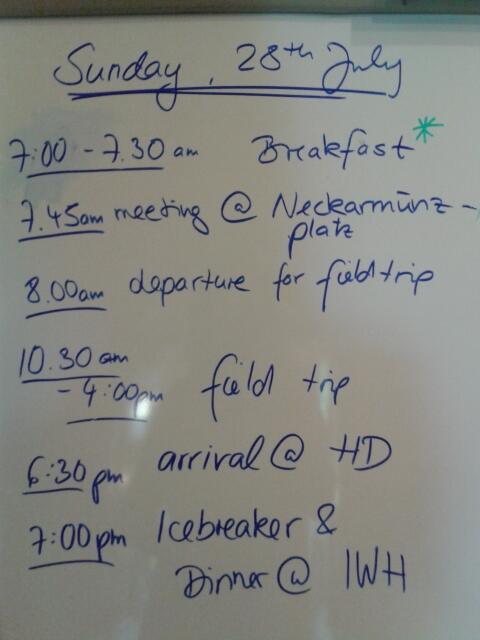 Sunday, 28th July
7:00 - 7.30 am Breakfast*
7.45am meeting @ Neckarmünz-
platz
8.00am departure for field trip
10.30 am
- 4:00pm field trip
6:30 pm arrival @ HD
7:00pm Icebreaker &
Dinner @ IWH